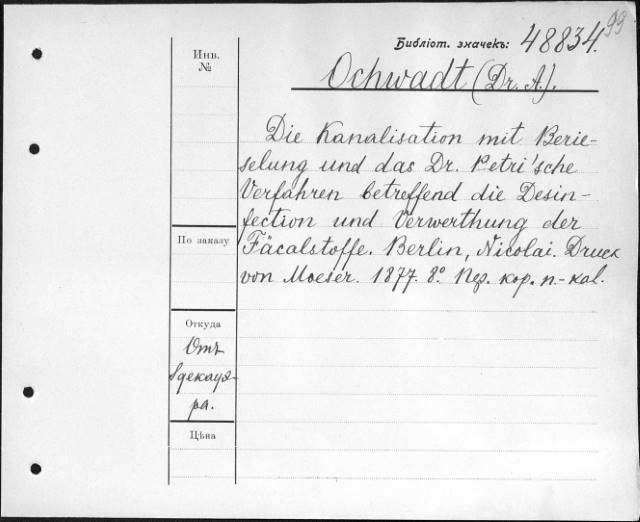 99
Библіот. значекъ: 48834.
Инв.
№
Ochwadt (Dr. A).
Die Kanalisation mit Berie-
selung und das Dr. Petri'sche
Verfahren betreffend die Desin-
fection und Verwerthung der
Fäcalstoffe. Berlin, Nicolai. Druck
von Moeser. 1877. 8° Пер. кор. п.-кал.
По заказу
Откуда
Отъ
Здекауэ-
ра.
Цѣна